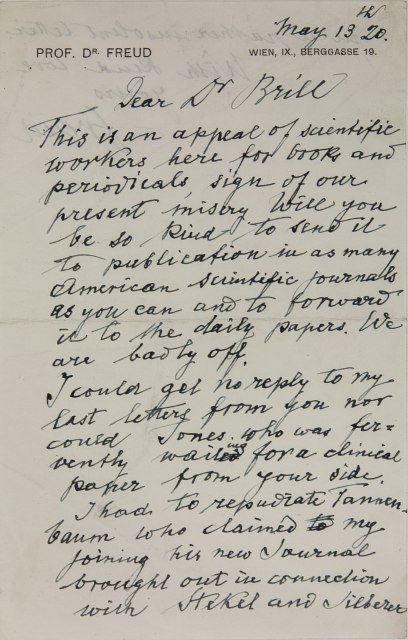 May 13th 20.
PROF. DR. FREUD
WIEN, IX., BERGGASSE 19.
Dear Dr Brill
This is an appeal of scientific
workers here for books and
periodicals, sign of our
present misery. Will you
be so kind to send it
to publication in as many
American scientific journals
as you can and to forward
it to the daily papers. We
are badly off.
I could get no reply to my
last letters from you nor
could Jones, who was fer-
vently waiting for a clinical
paper from your side.
I had to repudiate Tannen-
baum who claimed to my
joining his new Journal
brought out in connection
with Stekel and Silberer